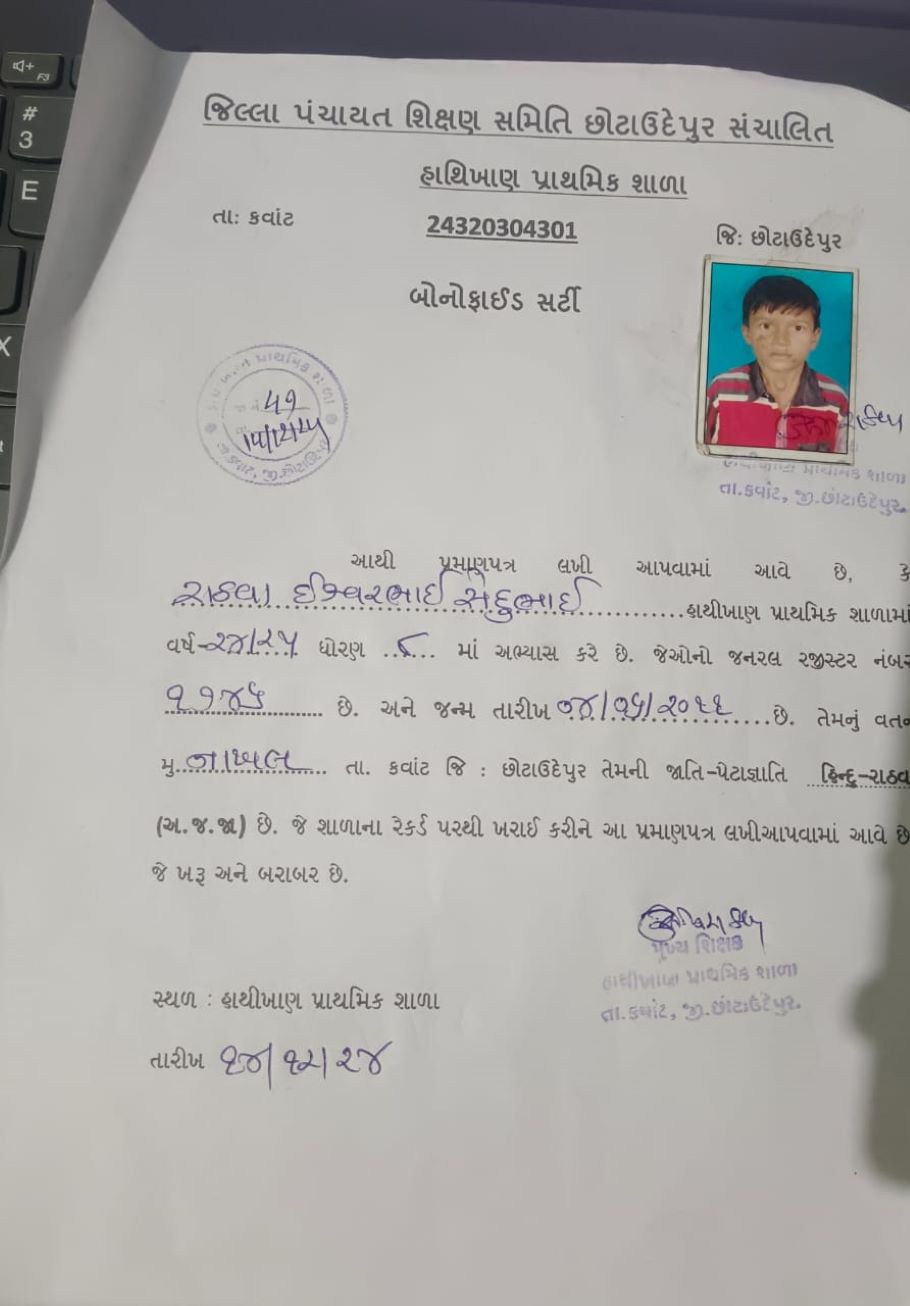 જિલ્લા પંચાયત શિક્ષણ સમિતિ છોટાઉદેપુર સંચાલિત
હાથિખાણ પ્રાથમિક શાળા
તા: કવાંટ 24320304301 જિ: છોટાઉદેપુર
બોનોફાઈડ સર્ટી
પ્રાથમિક શાળા
૫૧
પ્રાથમિક શાળા
તા.કવાંટ, જી.છોટાઉદેપુર.
આથી પ્રમાણપત્ર લખી આપવામાં આવે છે, કે
રાઠવા ઈશ્વરભાઈ સેદુભાઈ હાથીખાણ પ્રાથમિક શાળામાં
વર્ષ-૨૪/૨૫ ધોરણ ૮ માં અભ્યાસ કરે છે. જેઓનો જનરલ રજીસ્ટર નંબર
૧૧૪૬ છે. અને જન્મ તારીખ છે. તેમનું વતન
મુ. તા. કવાંટ જિ : છોટાઉદેપુર તેમની જાતિ-પેટાજ્ઞાતિ હિન્દુ-રાઠવ
(અ.જ.જા) છે. જે શાળાના રેકર્ડ પરથી ખરાઈ કરીને આ પ્રમાણપત્ર લખીઆપવામાં આવે છે
જે ખરૂ અને બરાબર છે.
મુખ્ય શિક્ષક
હાથીખાણ પ્રાથમિક શાળા
તા.કવાંટ, જી.છોટાઉદેપુર.
સ્થળ : હાથીખાણ પ્રાથમિક શાળા
તારીખ ૧૪/૧૨/૨૪
F3
#
3
E
X